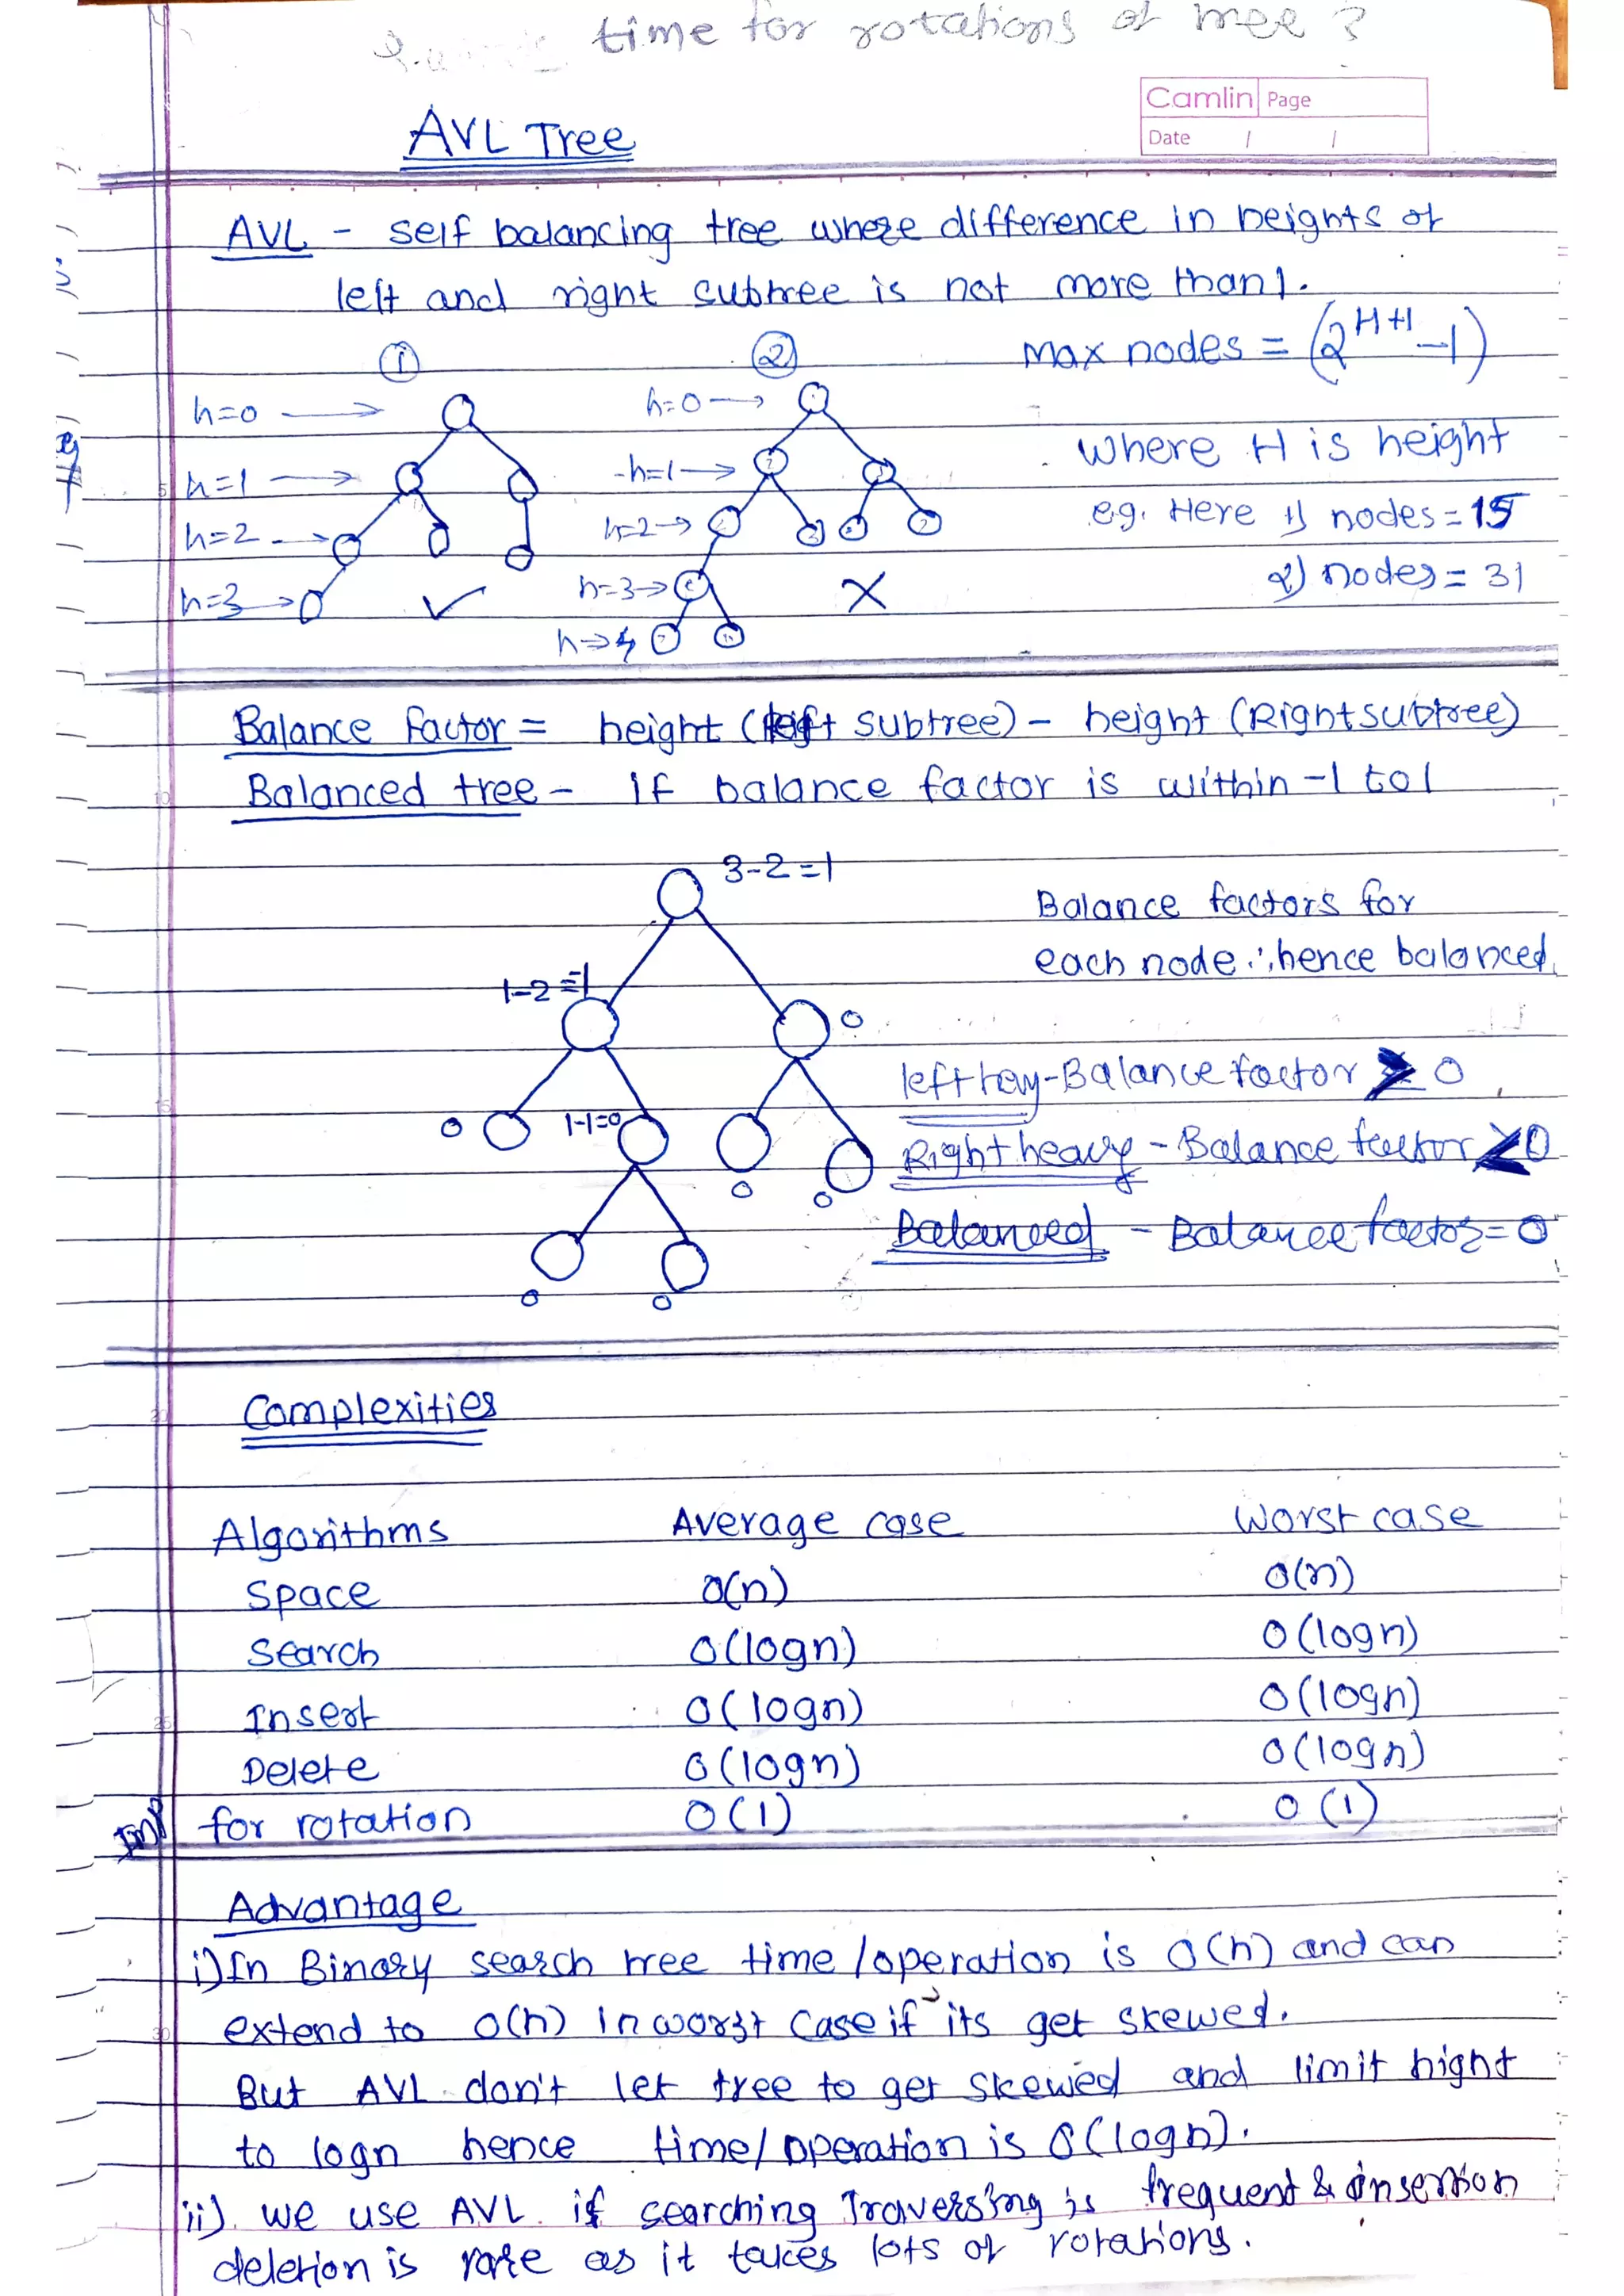 time for rotations of tree ?
Camlin Page
Date / /
AVL Tree
AVL - self balancing tree where difference in heights of
left and right subtree is not more than 1.
① ② max nodes = (2^{H+1} -1)
h=0 → h=0 →
h=1 → h=1 → where H is height
h=2 → h=2 → e.g. Here 1) nodes = 15
h=3 → ✓ h=3 → X 2) nodes = 31
h→4
Balance factor = height (left subtree) - height (Right subtree)
Balanced tree - if balance factor is within -1 to 1
3-2=1
Balance factors for
each node ∴ hence balanced.
1-2=-1
0
left heavy - Balance factor > 0
0 1-1=0
Right heavy - Balance factor < 0
0 0
Balanced - Balance factor = 0
0 0
Complexities
Algorithms Average case Worst case
Space O(n) O(n)
Search O(logn) O(logn)
Insert O(logn) O(logn)
Delete O(logn) O(logn)
Imp for rotation O(1) O(1)
Advantage
i) In Binary search tree time/operation is O(h) and can
extend to O(n) in worst case if its get skewed.
But AVL don't let tree to get skewed and limit hight
to logn hence time/operation is O(logn).
ii) we use AVL if searching Traversing is frequent & insertion
deletion is rare as it takes lots of rotations.